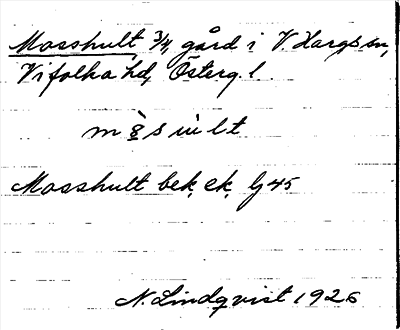 Mosshult, 3/4, gård i V. Hargs sn,
Vifolka hd, Österg. l.
Mosshult bek, ek, Lj 45
N. Lindqvist 1926